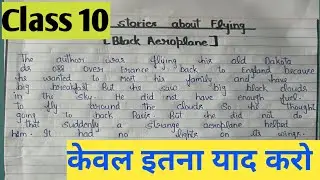 Class 10
stories about Flying
[Black Aeroplane]
The author was flying his old Dakota
over France back to England because
he wanted to meet his family and have
big breakfast But he saw big black clouds
in the sky. He did not have enough fuel
to fly around the clouds so he thought
going to back Paris But he did not do
that suddenly a strange aeroplane helped
him. It had no lights on its wings.
केवल इतना याद करो